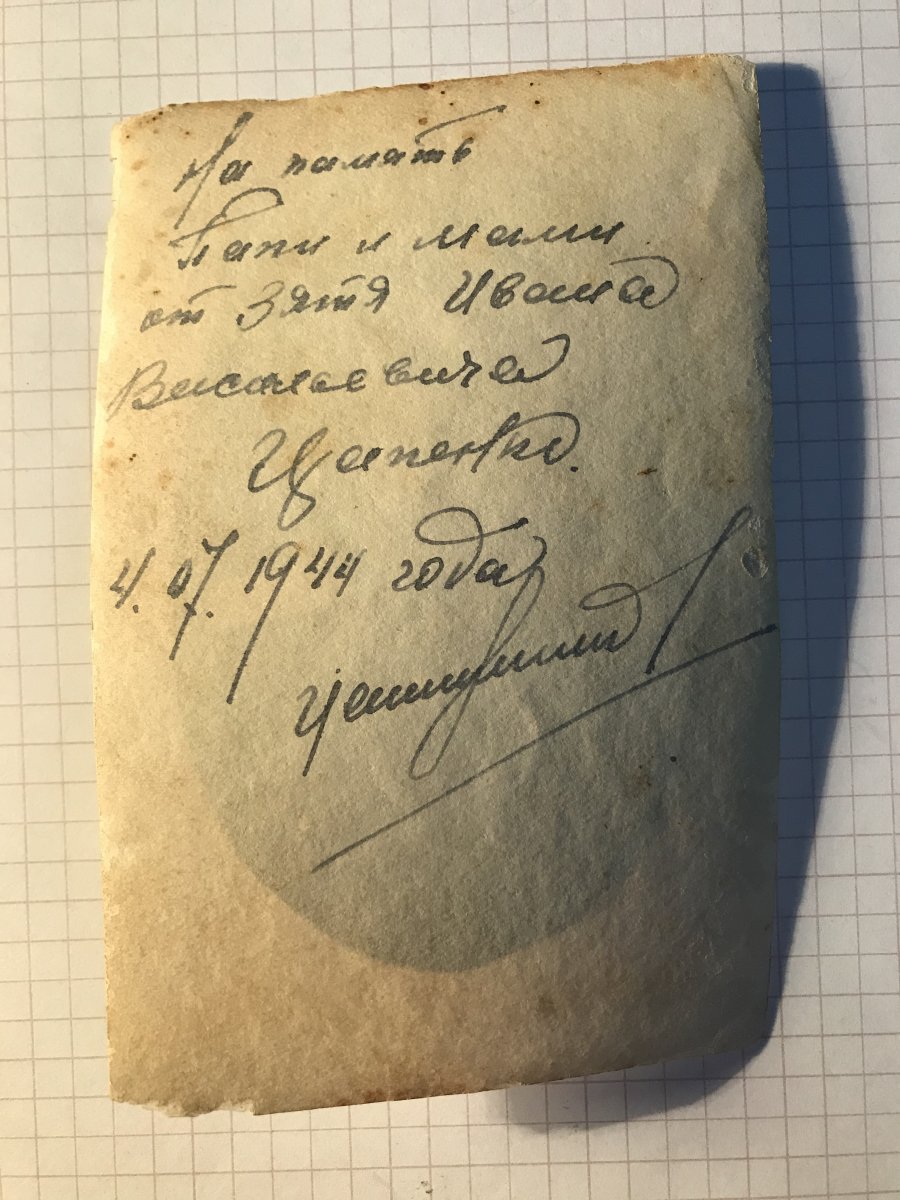 На память
Папи и мами
от Зятя Ивана
Васильевича
Цапенко.
4.07.1944 года